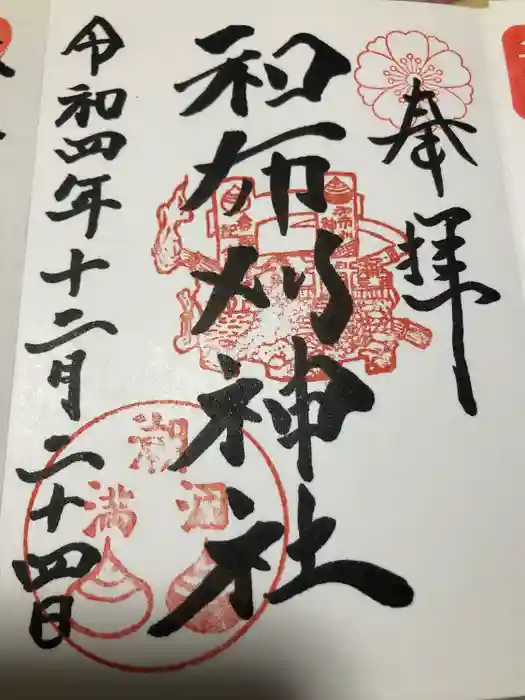 奉拝
和布刈神社
令和四年十二月二十四日
潮
満